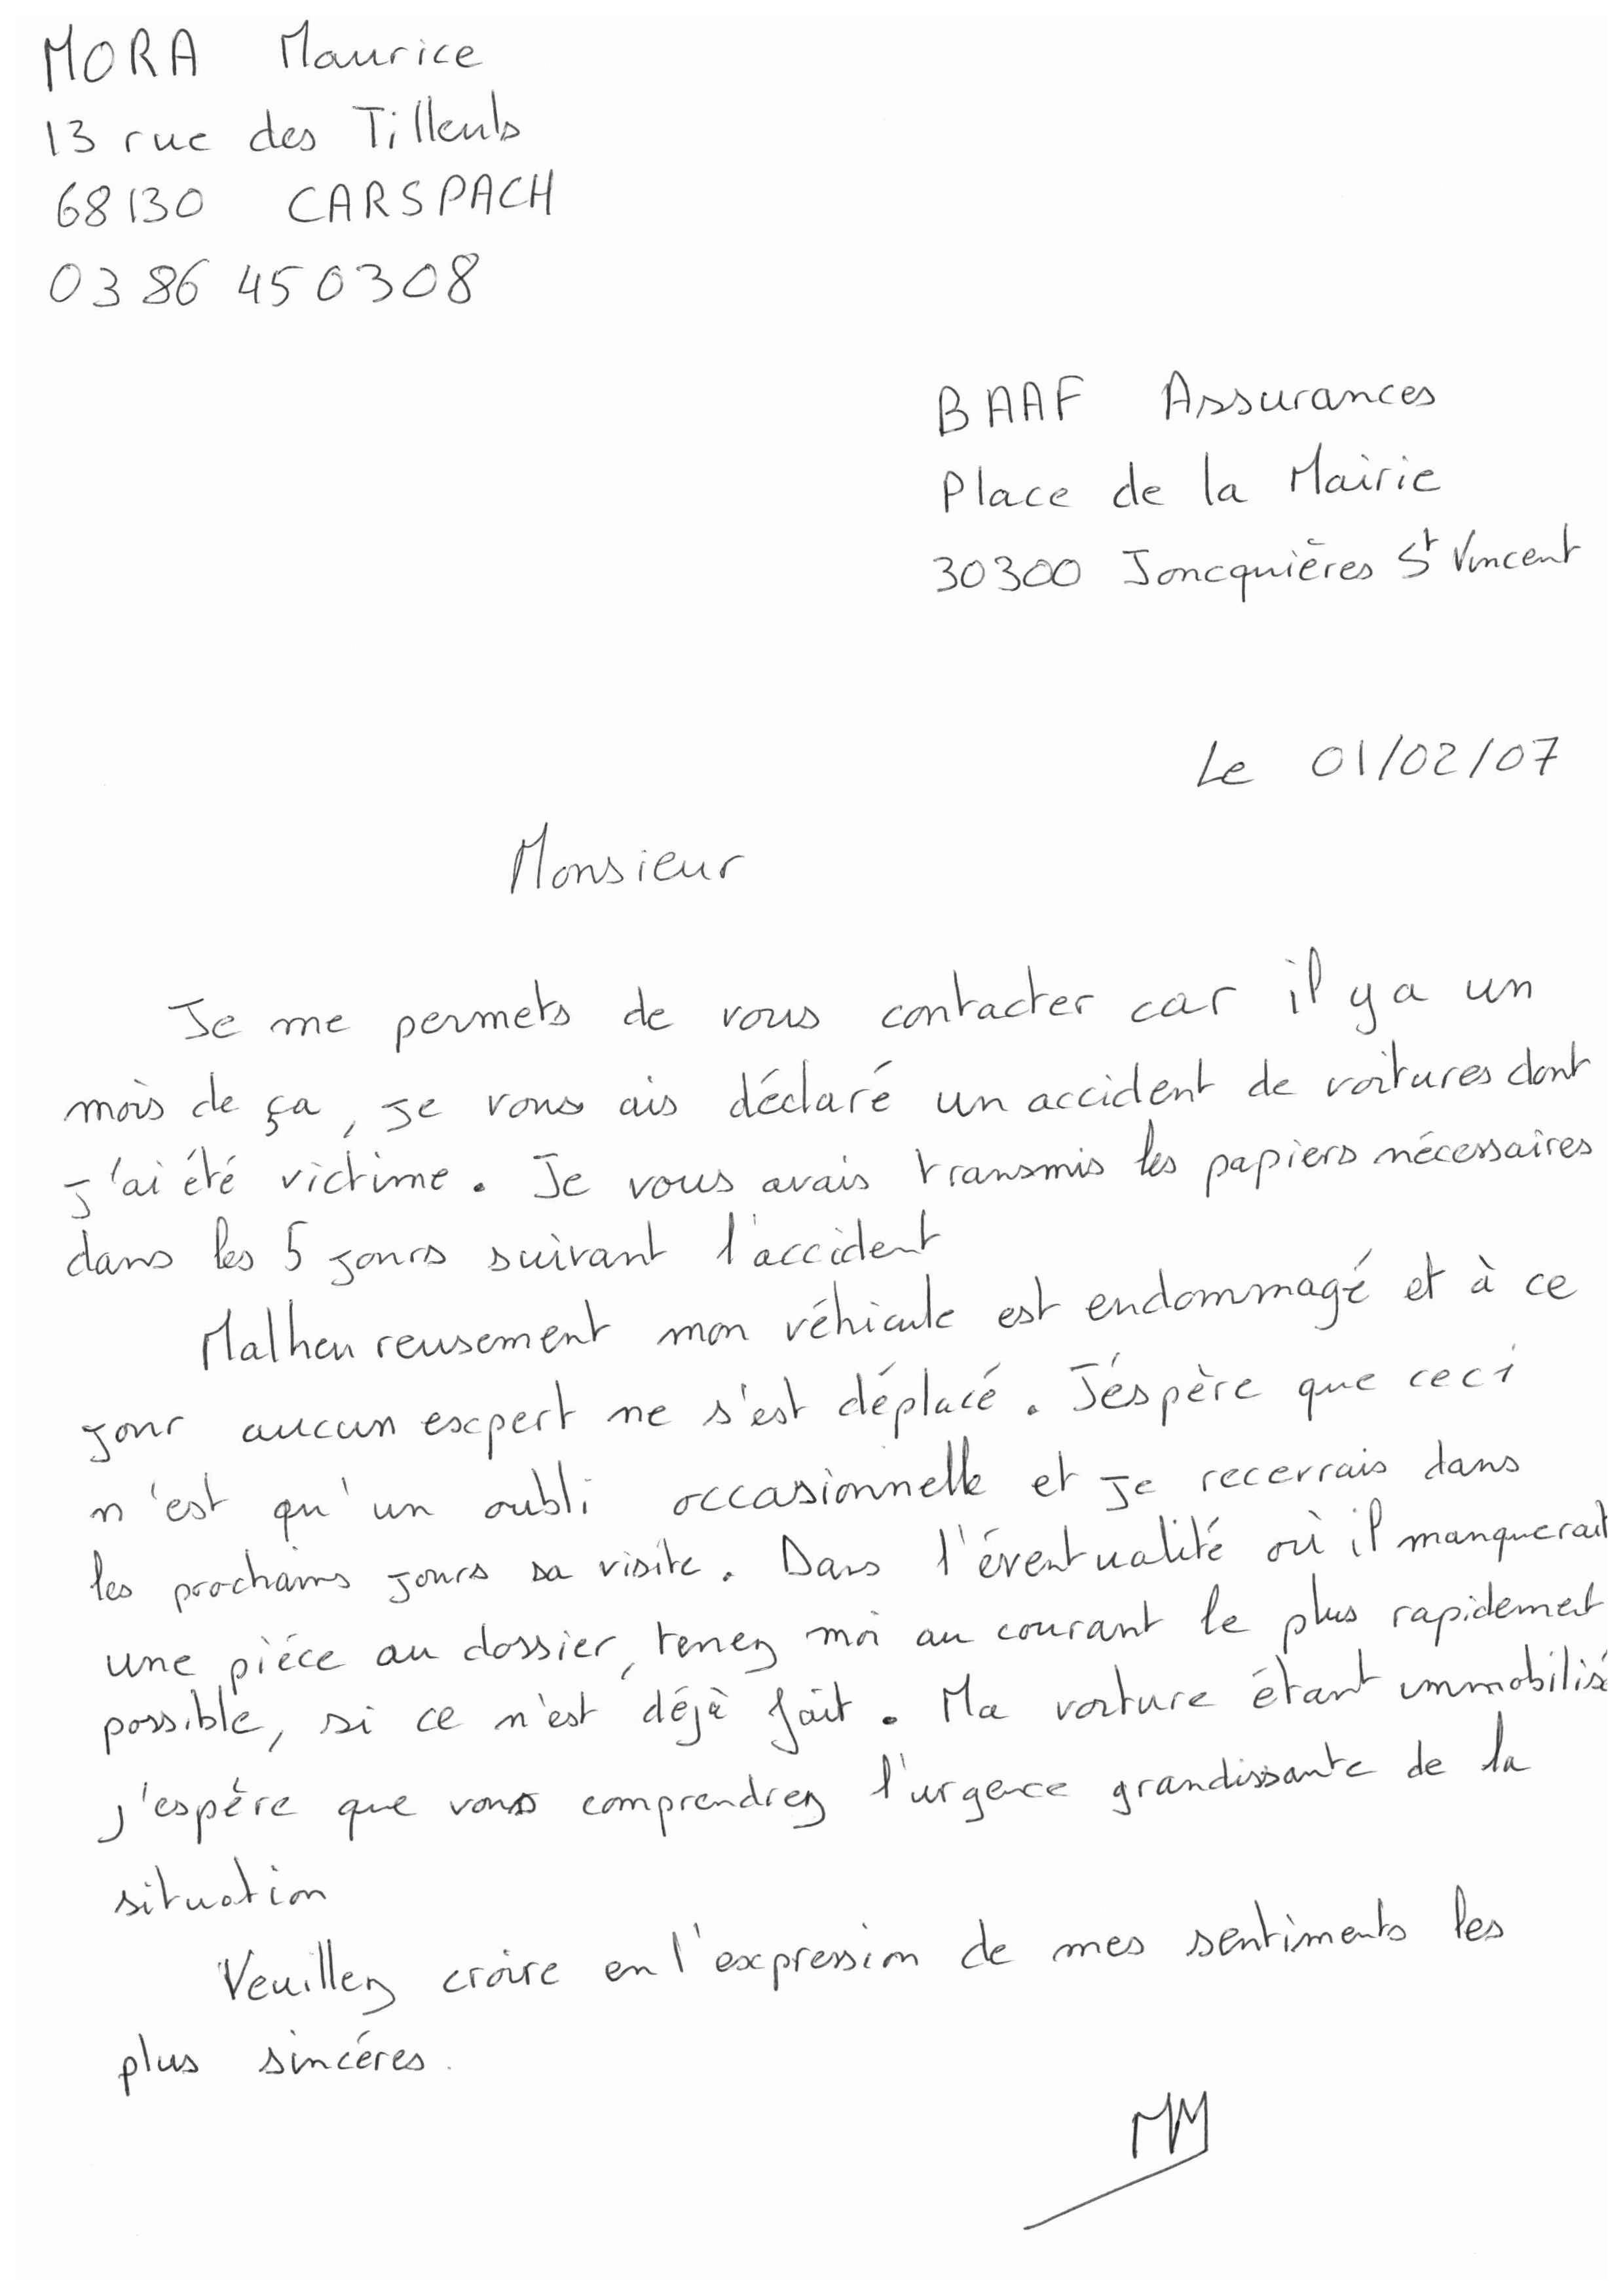 MORA Maurice
13 rue des Tilleuls
68130 CARSPACH
03 86 45 03 08
BAAF Assurances
Place de la Mairie
30300 Joncquières St Vincent
Le 01/02/07
Monsieur
Je me permets de vous contacter car il y a un
mois de ça, je vous ais déclaré un accident de voitures dont
j'ai été victime. Je vous avais transmis les papiers nécessaires
dans les 5 jours suivant l'accident
Malheureusement mon véhicule est endommagé et à ce
jour aucun expert ne s'est déplacé. J'éspère que ceci
n'est qu'un oubli occasionnelle et je recevrais dans
les prochains jours sa visite. Dans l'éventualité où il manquerait
une piéce au dossier, tenez moi au courant le plus rapidement
possible, si ce n'est déjà fait. Ma voiture étant immobilisé
j'espère que vous comprendrez l'urgence grandissante de la
situation
Veuillez croire en l'expression de mes sentiments les
plus sincéres.
MM